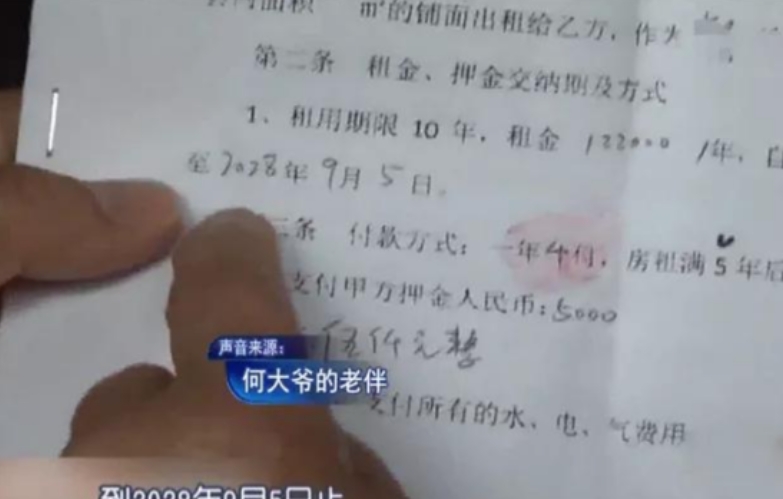 面积 m²的铺面出租给乙方，作为
第二条 租金、押金交纳期及方式
1、租用期限 10 年，租金 122000 /年，自
至2028年9月5日。
三条 付款方式：一年4付，房租满5年后
支付甲方押金人民币：5000
伍仟元整
声音来源：
何大爷的老伴
支付所有的水、电、气费用
到2028年9月5日止